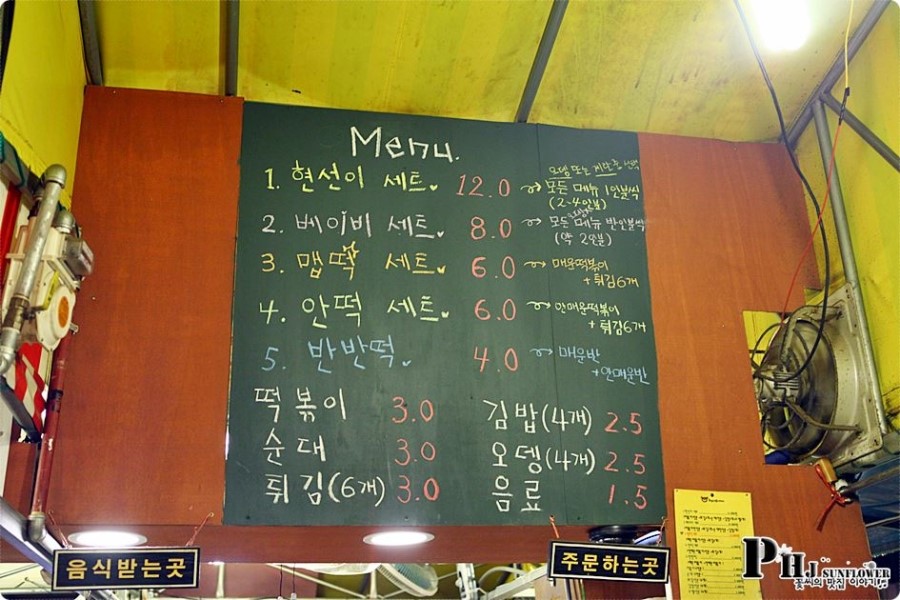 Menu.
1. 현선이 세트 12.0 오뎅 또는 계란중 선택
모든 메뉴 1인분씩
(2~4인분)
2. 베이비 세트 8.0 모든 메뉴 반인분씩
(약 2인분)
3. 맵떡 세트 6.0 매운떡볶이
+ 튀김 6개
4. 안떡 세트 6.0 안매운떡볶이
+ 튀김 6개
5. 반반떡 4.0 매운반
+ 안매운반
떡볶이 3.0
순대 3.0
튀김(6개) 3.0
김밥(4개) 2.5
오뎅(4개) 2.5
음료 1.5
음식받는곳
주문하는곳
PHJ SUNFLOWER
꽃씨의 맛집 이야기